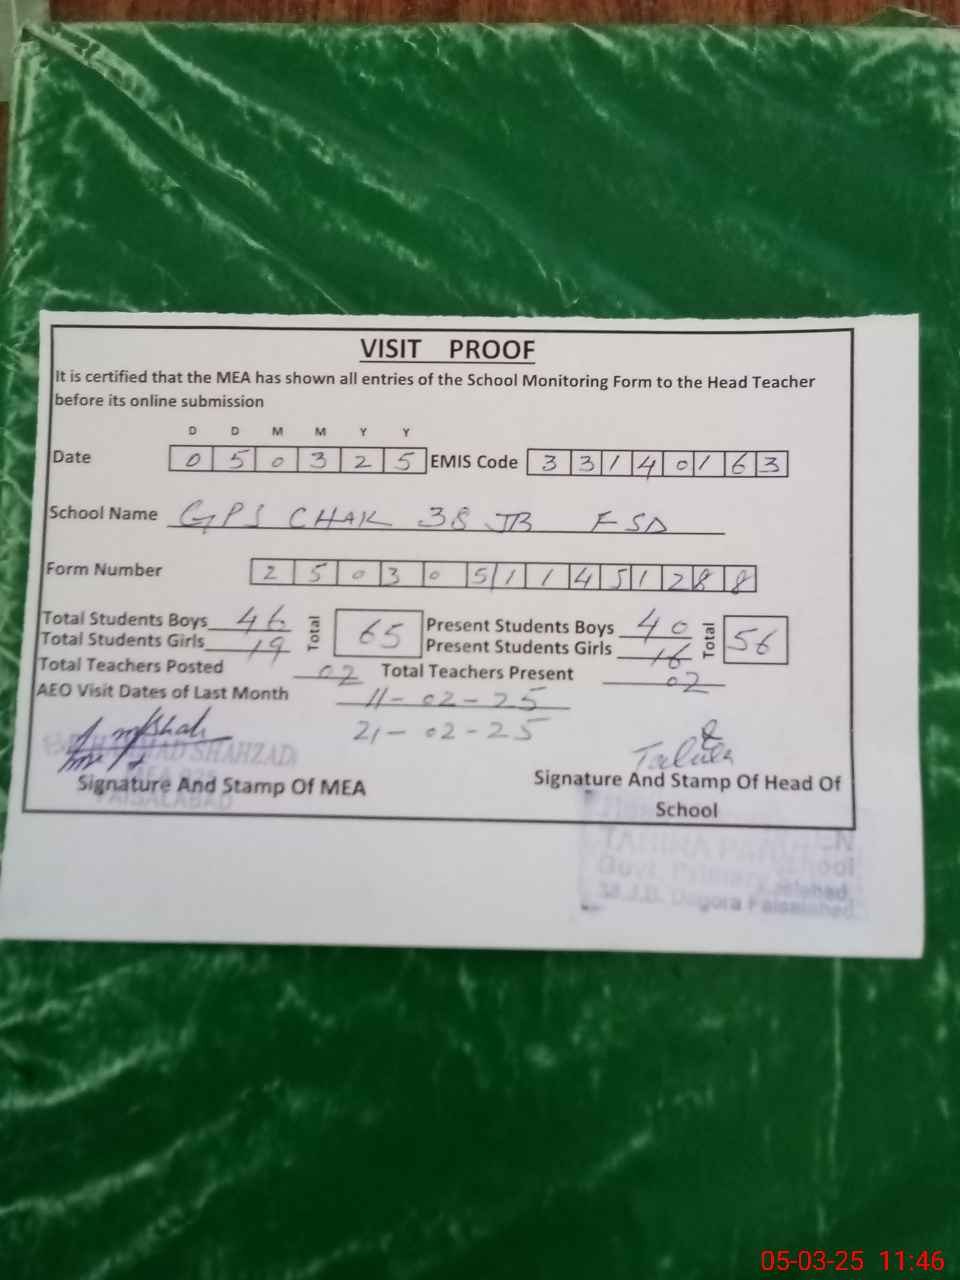 VISIT PROOF
It is certified that the MEA has shown all entries of the School Monitoring Form to the Head Teacher
before its online submission
D D M M Y Y
Date 0 5 0 3 2 5 EMIS Code 3 3 1 4 0 1 6 3
School Name GPS CHAK 38 JB FSD
Form Number 2 5 0 3 0 5 1 1 4 5 1 2 8 8
Total Students Boys 46 Total 65 Present Students Boys 40 Total 56
Total Students Girls 19 Present Students Girls 16
Total Teachers Posted 02 Total Teachers Present 02
AEO Visit Dates of Last Month 11-02-25
21-02-25
SHAHZAD
Signature And Stamp Of MEA Signature And Stamp Of Head Of
FAISALABAD School
TAHIRA PARVEEN
Govt. Primary School
38 J.B. Faisalabad
05-03-25 11:46